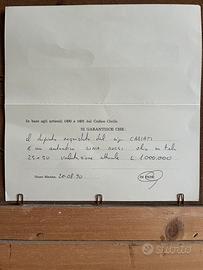 In base agli articoli 1490 e 1491 del Codice Civile
SI GARANTISCE CHE
il dipinto acquistato dal sig. CARIATI
è un autentico GINA ROSSI olio su tela
25x30 valutazione attuale L. 1.000.000
20.08.90
Subito